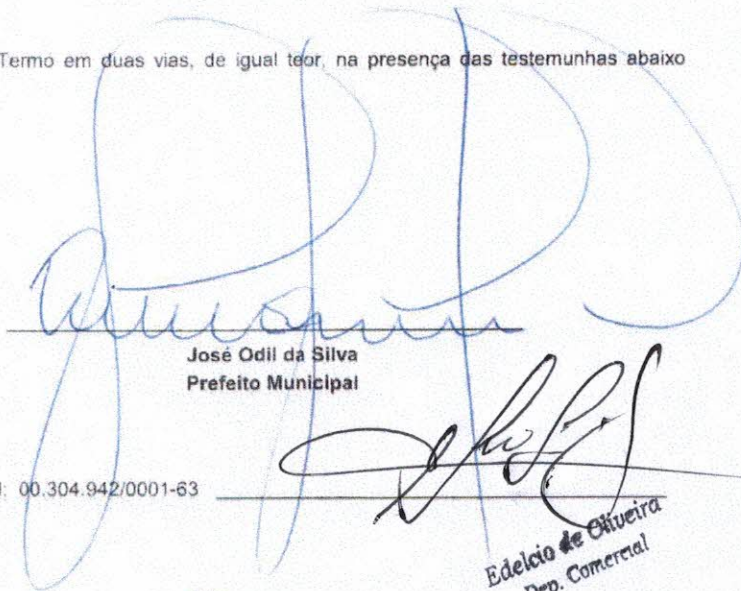 Termo em duas vias, de igual teor, na presença das testemunhas abaixo
José Odil da Silva
Prefeito Municipal
: 00.304.942/0001-63
Edelcio de Oliveira
Dep. Comercial